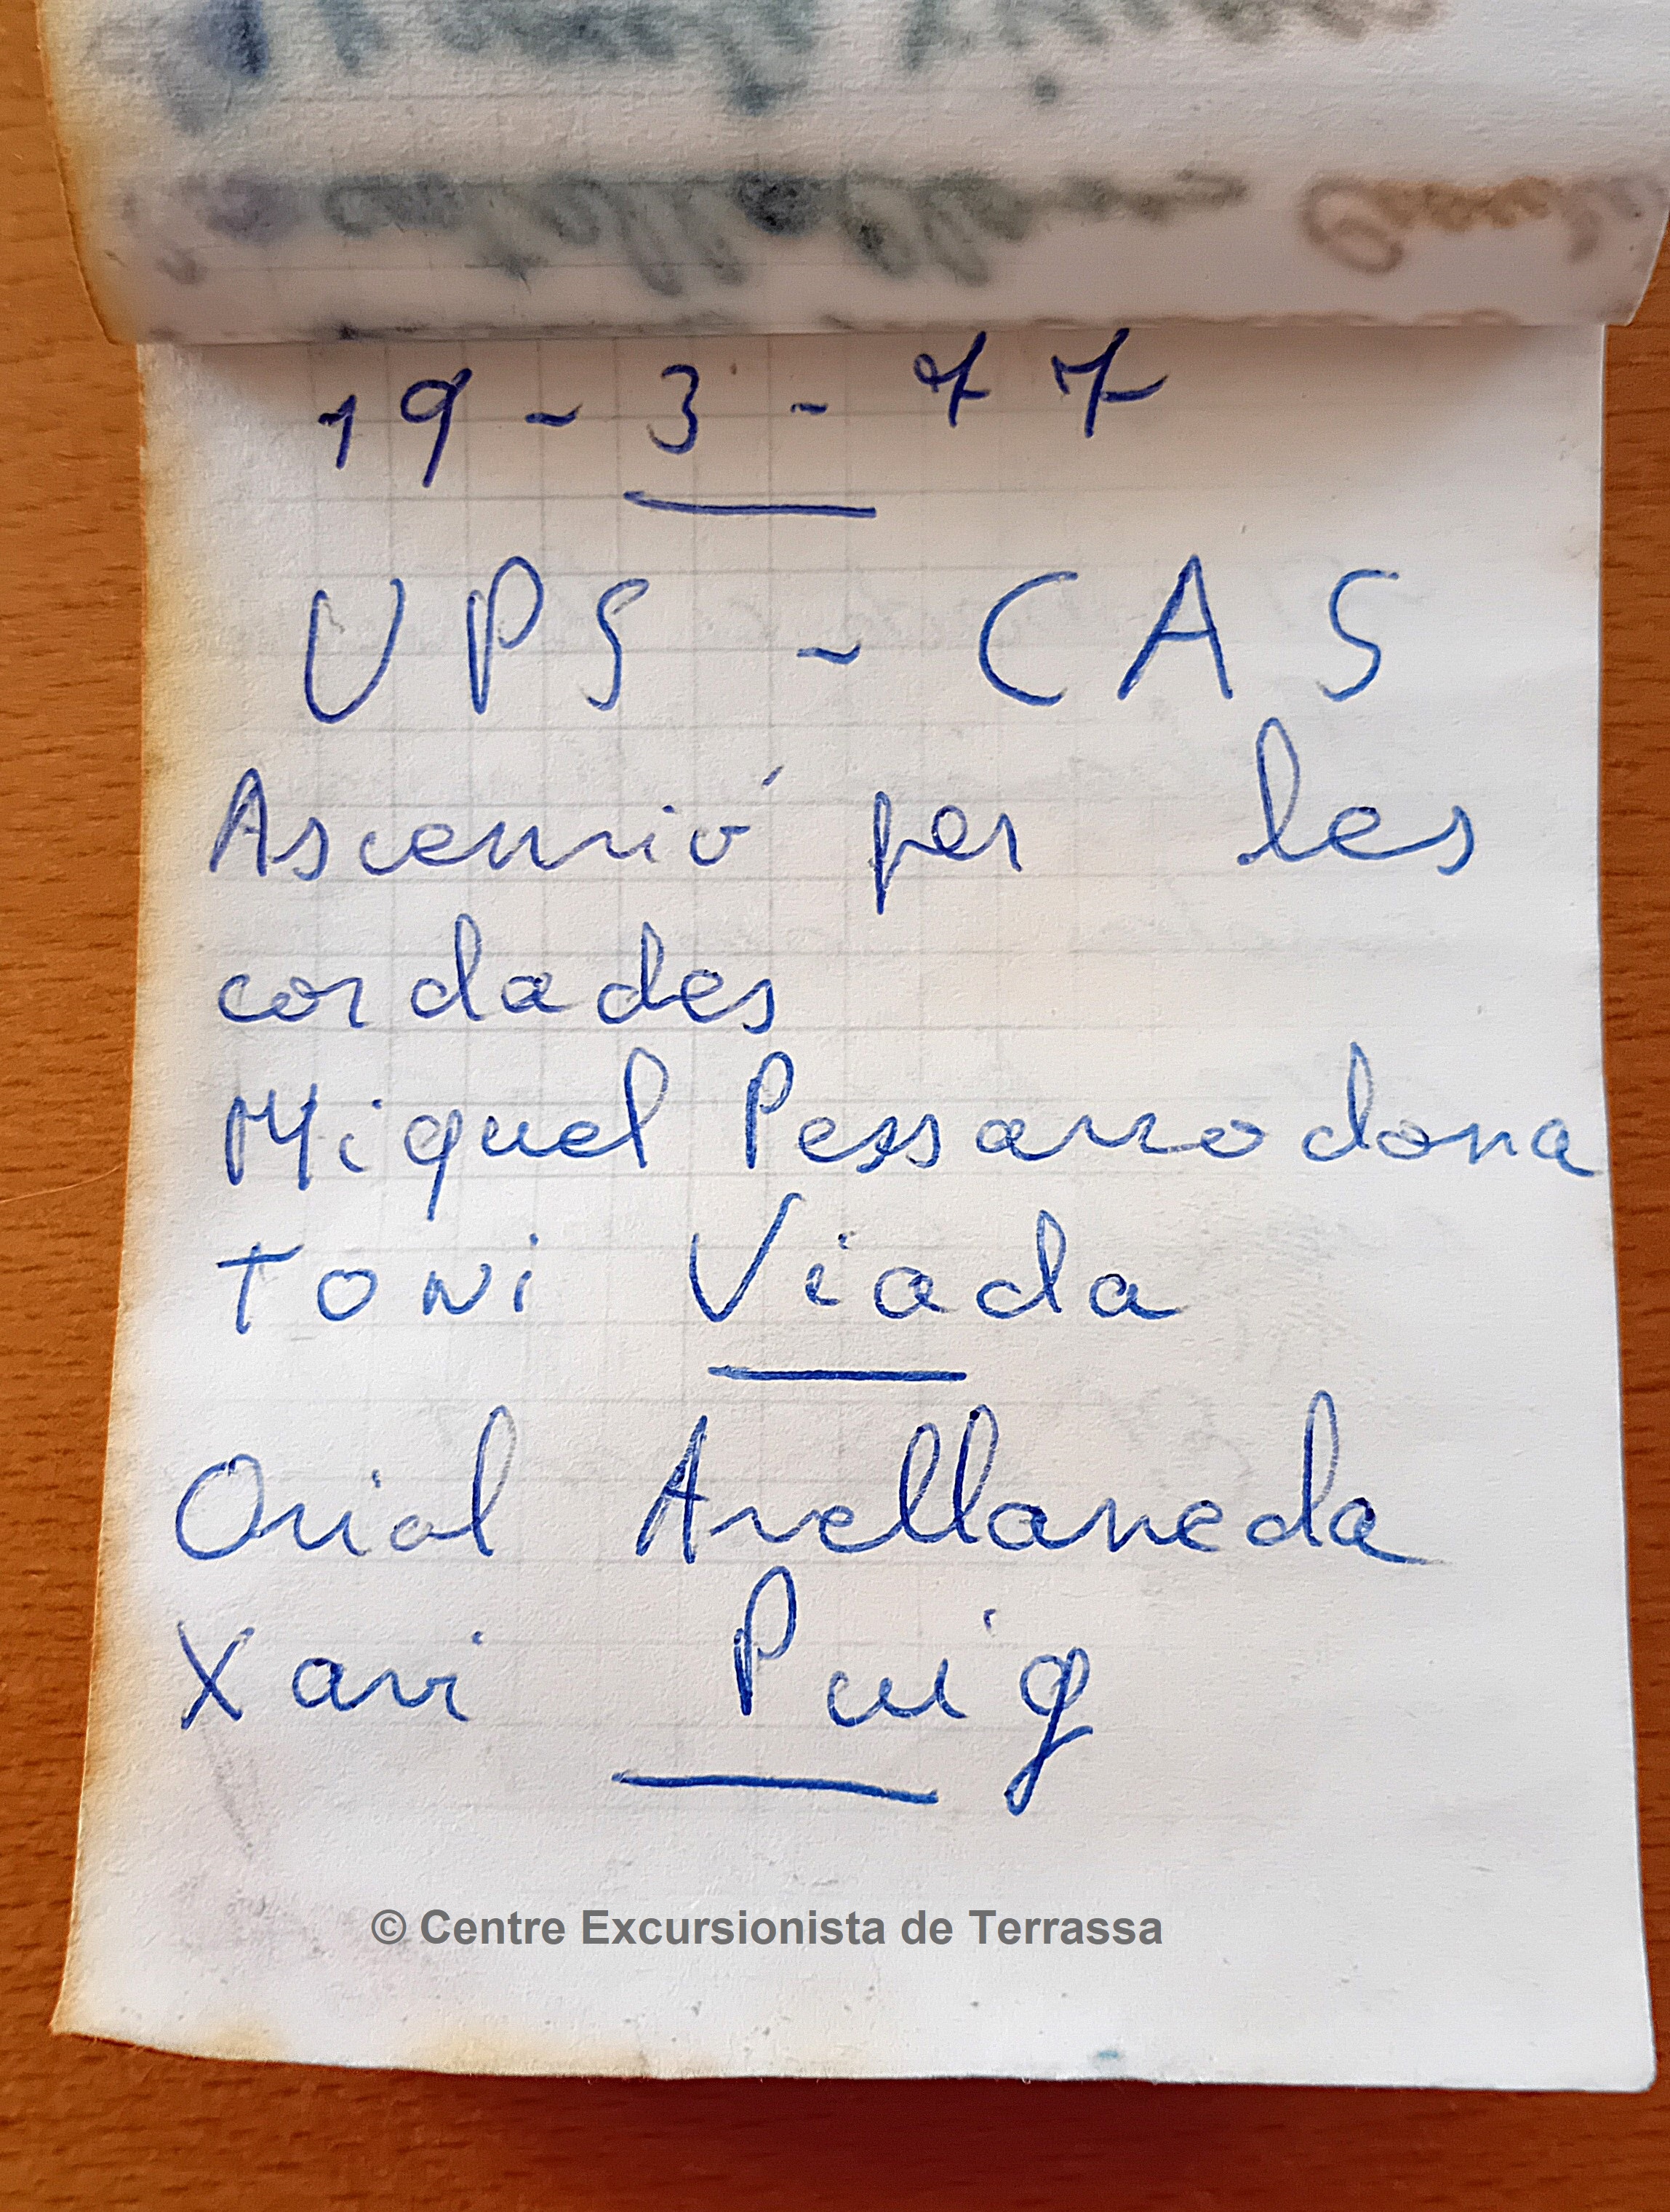 19 - 3 - 77
UPS - CAS
Ascensió per les
cordades
Miquel Pessarrodona
Toni Viada
Oriol Avellaneda
Xavi Puig
© Centre Excursionista de Terrassa